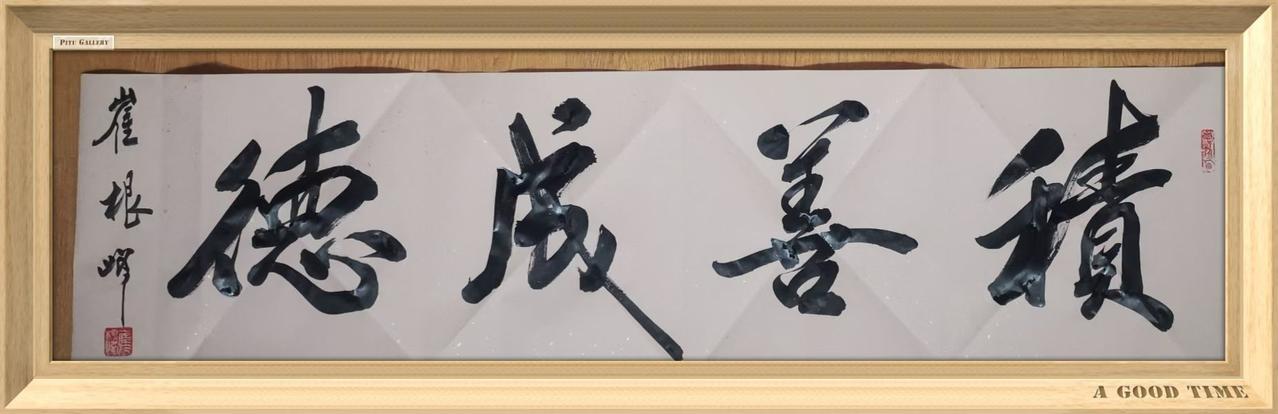 PITU GALLERY
積善成德
崔根峰
A GOOD TIME